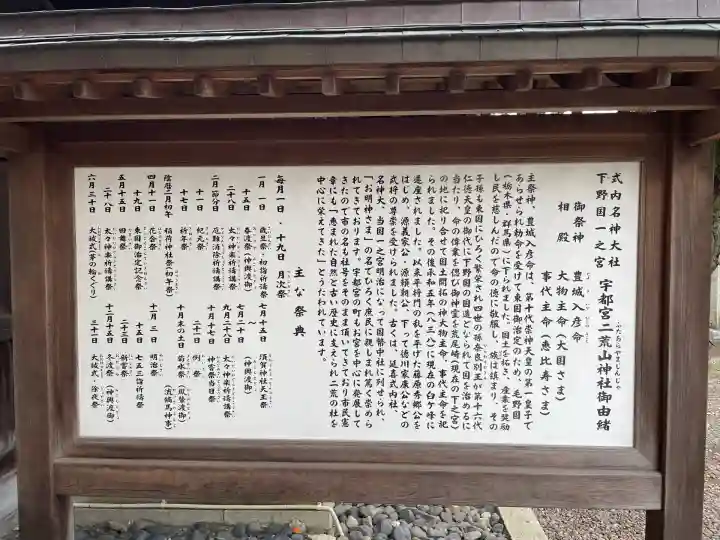 式内名神大社
下野国一之宮 宇都宮二荒山神社御由緒
ふたあらやまじんじゃ
御祭神 豊城入彦命
相殿 大物主命(大国さま)
事代主命(恵比寿さま)
主祭神、豊城入彦命は、第十代崇神天皇の第一皇子で
あらせられ勅命を受けて東国御治定のため、毛野国
(栃木県・群馬県)に下られました。国土を拓き、産業を奨励
し民を慈しんだので命の徳に敬服し、族は鎮まり、その
子孫も東国にひろく繁栄され四世の孫奈良別王が第十六代
仁徳天皇の御代に下野国の国造となられて国を治めるに
当たり、命の偉業を偲び御神霊を荒尾崎(現在の下之宮)
の地に祀り合せて国土開拓の神大物主命・事代主命を祀
られました。その後承和五年(八三八)に現在の臼ケ峰に
遷座されました。以来平将門の乱を平げた藤原秀郷公を
はじめ、源義家公・源頼朝公、下って徳川家康公などの
武将の尊崇を受けられました。古くは、延喜式内社、
名神大、当国一之宮明治になって国幣中社に列せられ、
「お明神さま」の名でひろく庶民に親しまれ篤く崇めら
れてきております。宇都宮の町もお宮を中心に発展して
きたので市の名も社号をそのまま頂いてきており市民憲
章にも「恵まれた自然と古い歴史に支えられ二荒の杜を
中心に栄えてきた」とうたわれています。
主な祭典
毎月一日・十九日 月次祭
一月一日 歳旦祭・初詣祈祷祭
十五日 春渡祭(神輿渡御)
二十八日 太々神楽祈祷講祭
二月節分日 厄難消除祈祷講祭
十一日 紀元祭
十七日 祈年祭
陰暦二月初午 稲荷神社祭(初午祭)
四月十一日 花会祭
十九日 東国御治定記念祭
五月十五日 田舞祭
二十八日 太々神楽祈祷講祭
六月三十日 大祓式(茅の輪くぐり)
七月十五日 須賀神社天王祭
七月二十日 (神輿渡御)
九月二十八日 太々神楽祈祷講祭
十月二十七日 神嘗祭当日祭
二十一日 例祭
十月末の土日 菊水祭(鳳輦渡御)
(流鏑馬神事)
十一月三日 明治祭
十五日 七五三詣祈祷祭
二十三日 新嘗祭
十二月十五日 冬渡祭(神輿渡御)
三十一日 大祓式・除夜祭